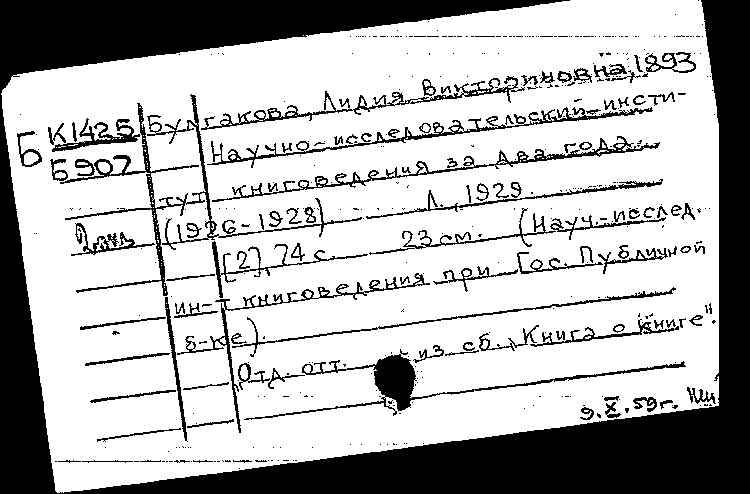 Булгакова, Лидия Викториновна, 1893
Б К1425
Б907
Научно-исследовательский инсти-
тут книговедения за два года
(1926-1928) Л., 1929.
[2], 74 с. 23 см. (Науч.-исслед.
ин-т книговедения при Гос. Публичной
б-ке).
Отд. отт. из сб. "Книга о книге".
9.X.59г.